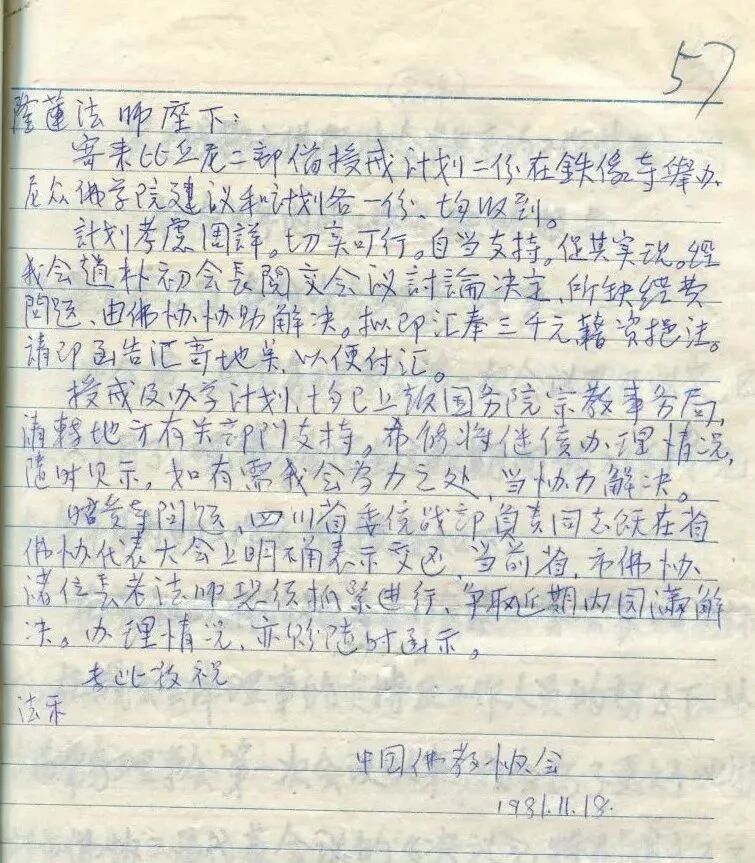 57
隆蓮法师座下：
寄来比丘尼二部僧授戒计划二份，在鉄像寺舉办
尼众佛学院建议和计划各一份，均收到。
計划考慮周詳。切实可行。自当支持。促其实现。经
我会趙朴初会長閱交会议討論决定，所缺经费
問题，由佛协协助解决。拟即汇奉三千元藉資挹注。
請即函告汇寄地点，以便付汇。
授戒及办学计划，均已上报国务院宗教事务局，
請转地方有关部門支持。希能将继续办理情况，
随时见示，如有需我会为力之处，当协力解决。
昭觉寺問题，四川省委统战部負责同志既在省
佛协代表大会上明确表示交回，当前省，市佛协
诸位長老法师，必须抓紧進行，争取近期内圆满解
决。办理情况，亦盼随时函示。
专此敬祝
法乐
中国佛教协会
1981.11.18.